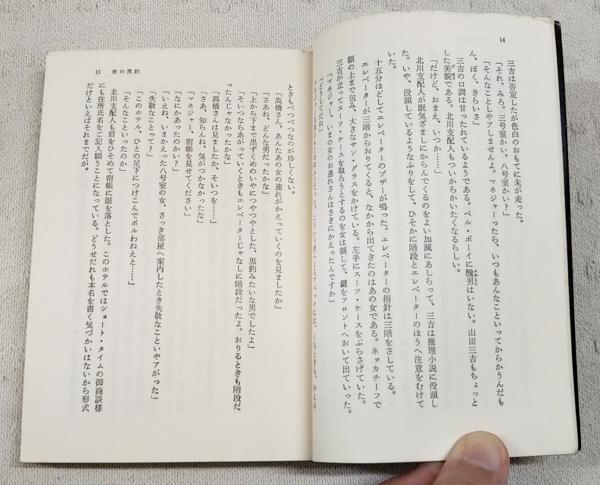 14
三吉は否定したが色白のおもてに朱が走った。
「それ、みろ。三号室かい、八号室かい？」
「そんなことしやアしませんよ。マネジャーったら、いつもあんなこといってからかうんだも
ん、ぼく、きらいさ」
三吉の口調は甘ったれているようである。ベル・ボーイに醜男はいない。山田三吉もちょっと
した美貌である。北川支配人もついからかいたくなるらしい。
「だけど、おまえ、いつか……」
北川支配人が眠気ざましにからんでくるのをよい加減にあしらって、三吉は推理小説に没頭し
た。いや、没頭しているようなふりをして、ひそかに階段とエレベーターのほうへ注意をむけて
いた。
十五分ほどしてエレベーターのブザーが鳴った。エレベーターの指針は三階をさしている。
エレベーターが三階からおりてくると、なかから出てきたのはあの女である。ネッカチーフで
額の上まで包み、大きなサン・グラスをかけている。左手にスーツ・ケースをぶらさげていた。
三吉が立ってスーツ・ケースを取ろうとするのを女は制して、鍵をフロントへおいて出ていった。
「マネジャー、いまの女のお連れさんはさきにかえったんですか」
15 夜の黒豹
ときもべつべつなのが珍しくない。
「高橋さん、あんたあの女の連れがかえっていくのを見ましたか」
「さあね、どんな男だったかな」
「上から下まで黒ずくめの、いやにつやつやとした、黒豹みたいな男でしたよ」
「そいつならあがっていくときもエレベーターじゃなしに階段だったよ。おりるときも階段だ
ったんじゃなかったかな」
「高橋さんは見ましたか、そいつを……」
「さあ、知らんね。気がつかなかったな」
「マネジャー、宿帳を見せてください」
「なにかあったのかい？」
「いえね、いまかえった八号室の女、さっき部屋へ案内したとき失敬なこといやアがった」
「失敬なことって？」
「このホテル、ひとの足下につけこんでボルわねえと……」
「そんなこといったのか」
北川支配人も眉をひそめて宿帳に眼を落とした。このホテルではショート・タイムの御商談様
にも住所氏名をご記入願うことになっている。どうせだれも本名を書く気づかいはないから形式
だけといえばそれまでだが。